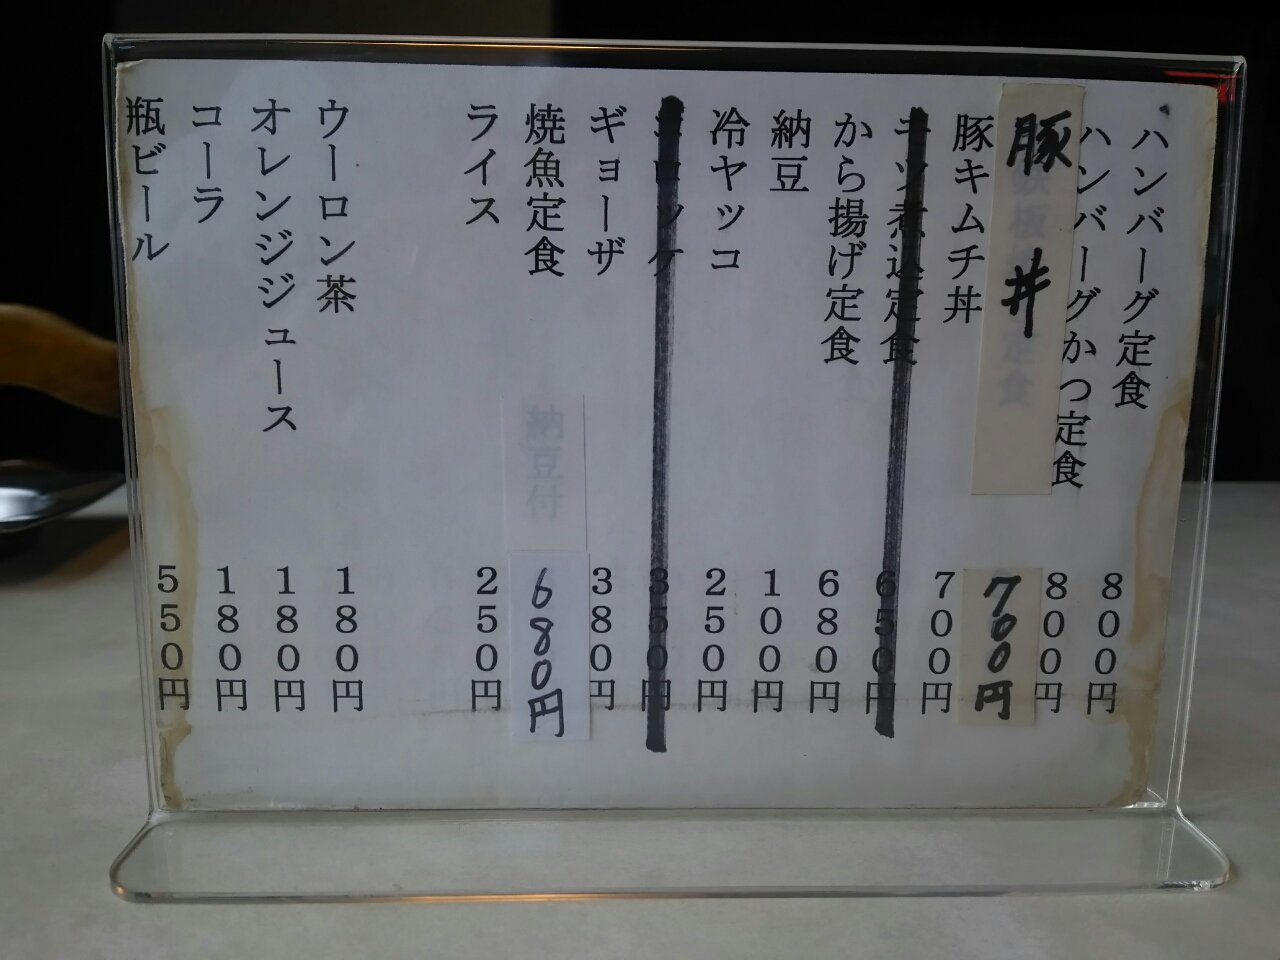 ハンバーグ定食 800円
ハンバーグかつ定食 800円
豚丼 700円
豚キムチ丼 700円
モツ煮込定食 650円
から揚げ定食 680円
納豆 100円
冷ヤッコ 250円
コロッケ 350円
ギョーザ 380円
焼魚定食 納豆付 680円
ライス 250円
ウーロン茶 180円
オレンジジュース 180円
コーラ 180円
瓶ビール 550円